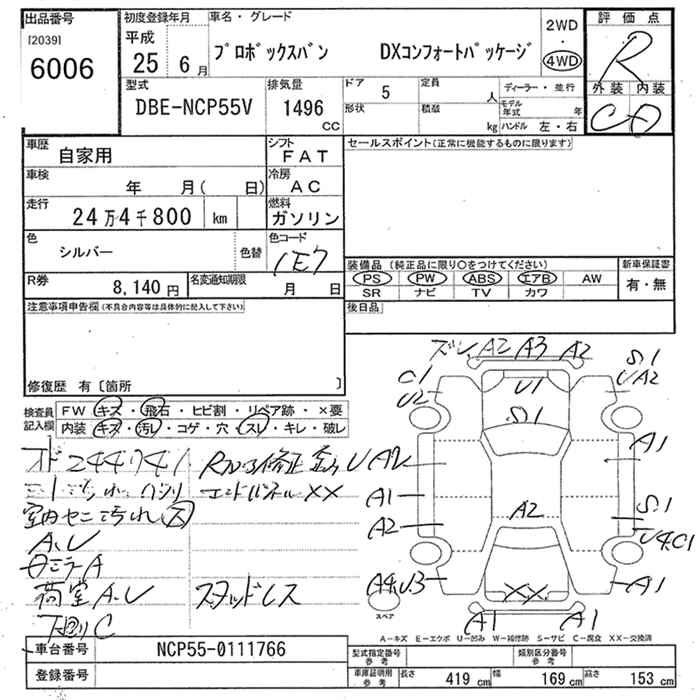 出品番号
[2039]
6006
初度登録年月
平成
25 6月
車名・グレード
プロボックスバン DXコンフォートパッケージ
2WD
・
4WD
評価点
R
外装 内装
C D
型式
DBE-NCP55V
排気量
1496
CC
ドア 5
形状
定員 人
積載 kg
ディーラー・並行
モデル年式 年
ハンドル 左・右
車歴 自家用
シフト FAT
車検 年 月( 日)
冷房 AC
走行 24万4千800 km
燃料 ガソリン
色 シルバー 色替
色コード 1E7
R券 8,140円
名変通知期限 月 日
セールスポイント(正常に機能するものに限ります)
装備品 (純正品に限り○をつけてください)
PS PW ABS エアB AW
SR ナビ TV カワ
新車保証書
有・無
後日品
注意事項申告欄(不具合内容等は具体的に記入して下さい)
修復歴 有〔箇所 〕
検査員
記入欄
FW キズ・飛石・ヒビ割・リペア跡・×要
内装 キズ・汚レ・コゲ・穴・スレ・キレ・破レ
244741
エンドパネルXX
A.U
荷室A.U スタッドレス
下廻りC
A2 A3 A2
S.1
UA2
C1
U2
U1
S.1
A1
A1
A2
A2
S.1
U4.C1
A4.U3
XX
A1
A1
A1
スペア
A-キズ E-エクボ U-凹み W-補修跡 S-サビ C-腐食 XX-交換済
車台番号 NCP55-0111766
登録番号
型式指定番号
参考
類別区分番号
参考
車庫証明用
参考
長さ 419cm
幅 169cm
高さ 153cm